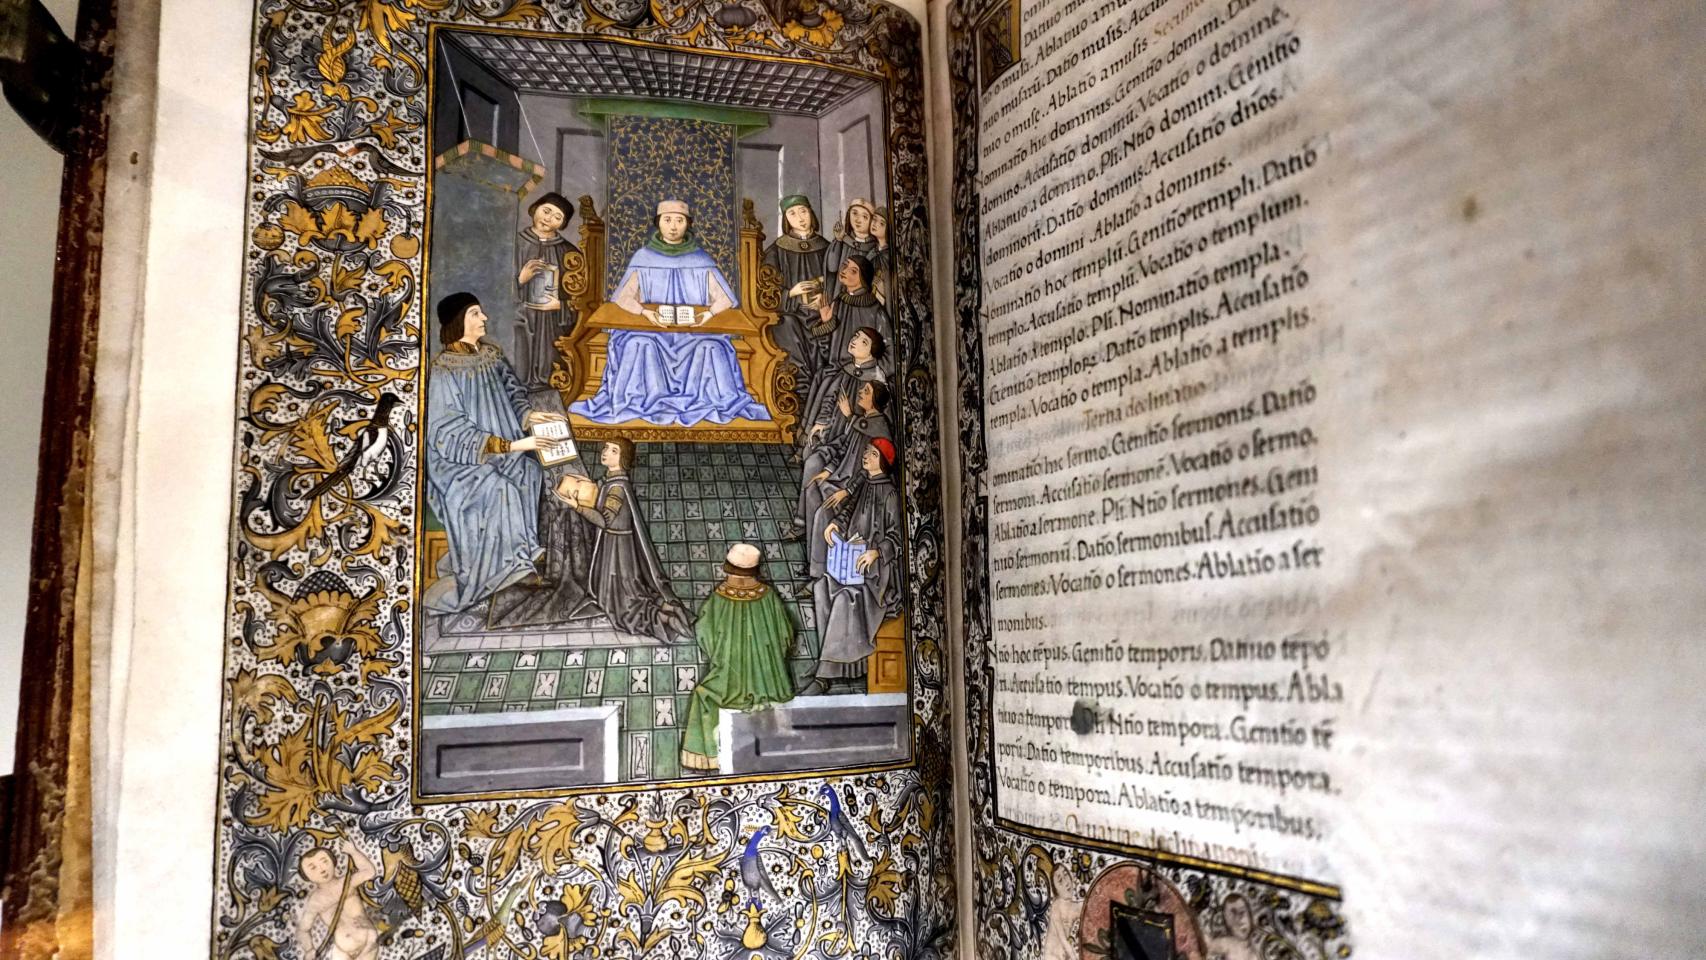 no o musa. Ablatiuo a mu
Datiuo musis. Accu
tiuo musarū. Datio
nuo o muse. Ablatio a musis
Nominatio hic dominus. Genitio domini. Da
domino. Accusatio dominū. Vocatio o domine.
Ablatiuo a domino. Płi. Ntio domini. Genitio
dominorū. Datio dominis. Accusatio dños.
Vocatio o domini. Ablatio a dominis.
Nominatio hoc templū. Genitio templi. Datio
templo. Accusatio templū. Vocatio o templum.
Ablatio a templo. Płi. Nominatio templa.
Genitio templorꝝ. Datio templis. Accusatio
templa. Vocatio o templa. Ablatio a templis.
Terna declinatio
Nominatio hic sermo. Genitio sermonis. Datio
sermoni. Accusatio sermonē. Vocatio o sermo.
Ablatio a sermone. Płi. Ntio sermones. Geni
tiuo sermonū. Datio sermonibus. Accusatio
sermones. Vocatio o sermones. Ablatio a ser
monibus.
Ntio hoc tēpus. Genitio temporis. Datiuo tēpo
ri. Accusatio tempus. Vocatio o tempus. Abla
tiuo a tempore Płi Ntio tempora. Genitio tē
porū. Datio temporibus. Accusatio tempora.
Vocatio o tempora. Ablatio a temporibus.
Quartae declinationis